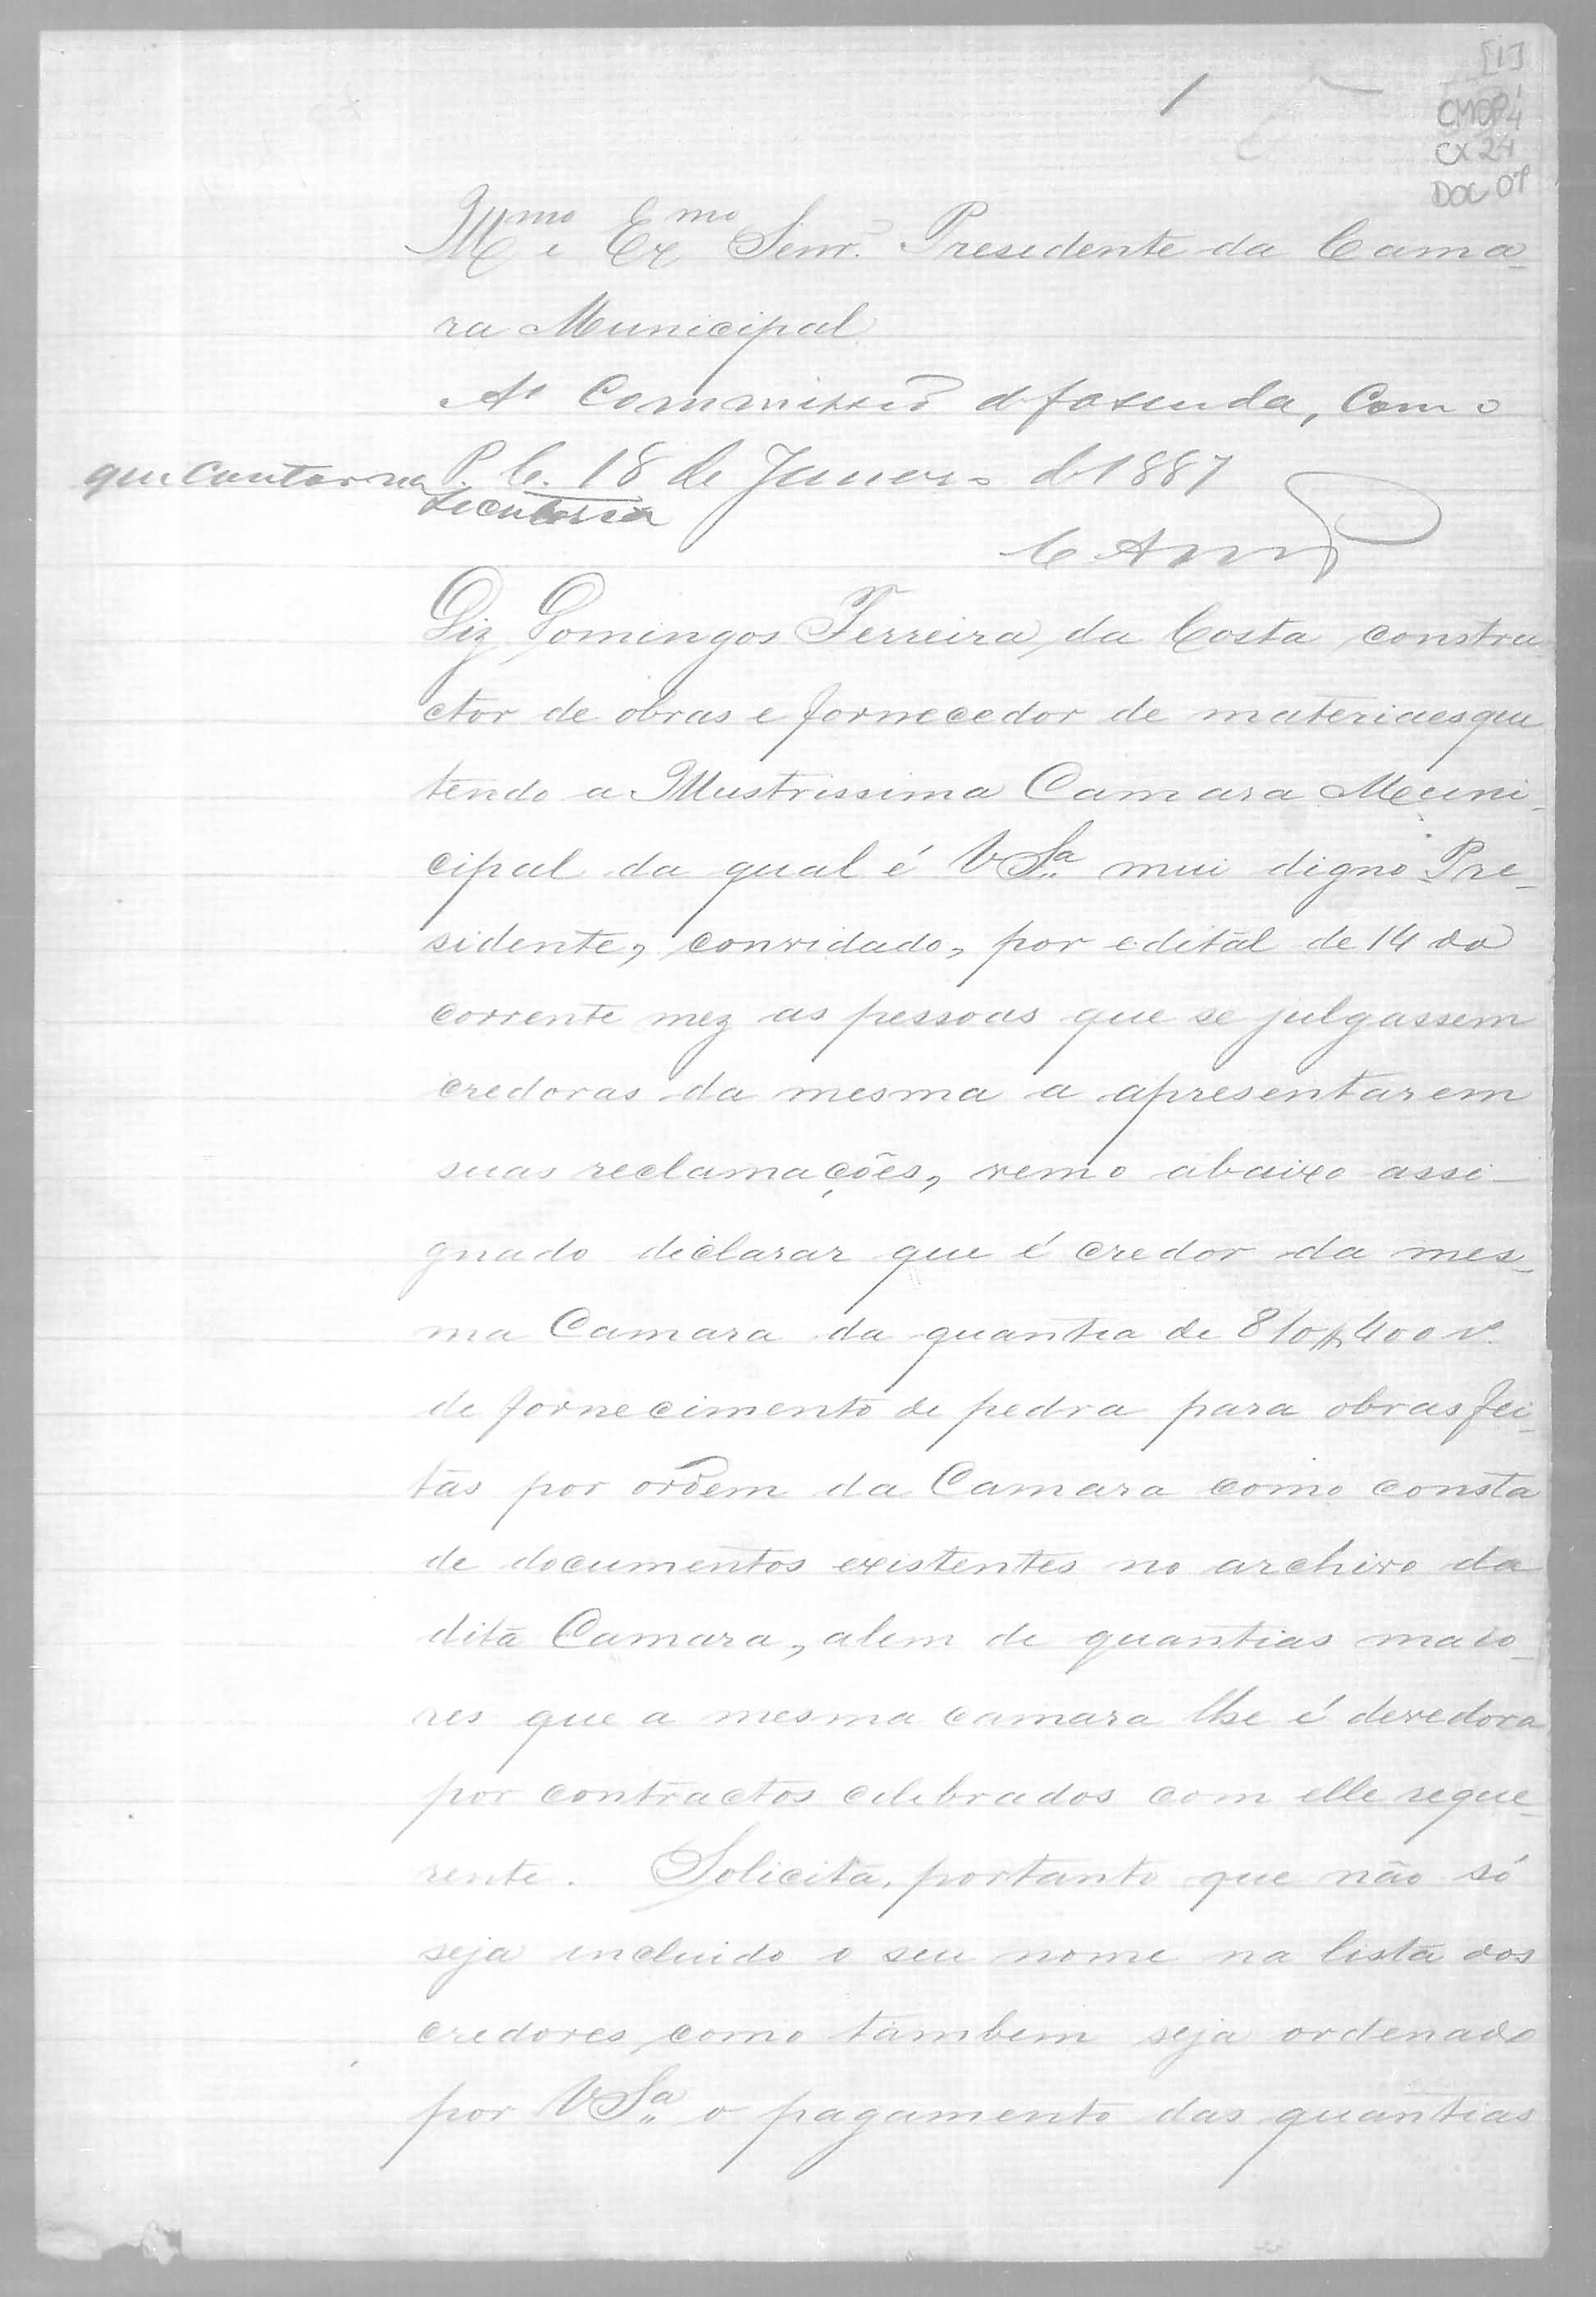 [1]
1
CMOP
CX 24
DOC 07
Illmo e Exmo Senr. Presidente da Cama-
ra Municipal
A' Commissão d fasenda, com o
que constar na
Secretaria
P. C. 18 de Janeiro d 1887
Diz Domingos Ferreira da Costa constru
ctor de obras e fornecedor de materiaes que
tendo a Illustrissima Camara Muni-
cipal da qual é V Sa mui digno Pre-
sidente, convidado, por edital de 14 do
corrente mez as pessoas que se julgassem
credoras da mesma a apresentarem
suas reclamações, vem o abaixo assi-
gnado declarar que é credor da mes-
ma Camara da quantia de 810$400 r.
de fornecimento de pedra para obras fei-
tas por ordem da Camara como consta
de documentos existentes no archivo da
dita Camara, alem de quantias maio-
res que a mesma camara lhe é devedora
por contractos celebrados com elle reque-
rente. Solicita, portanto que não só
seja incluido o seu nome na lista dos
credores como tambem seja ordenado
por V Sa o pagamento das quantias